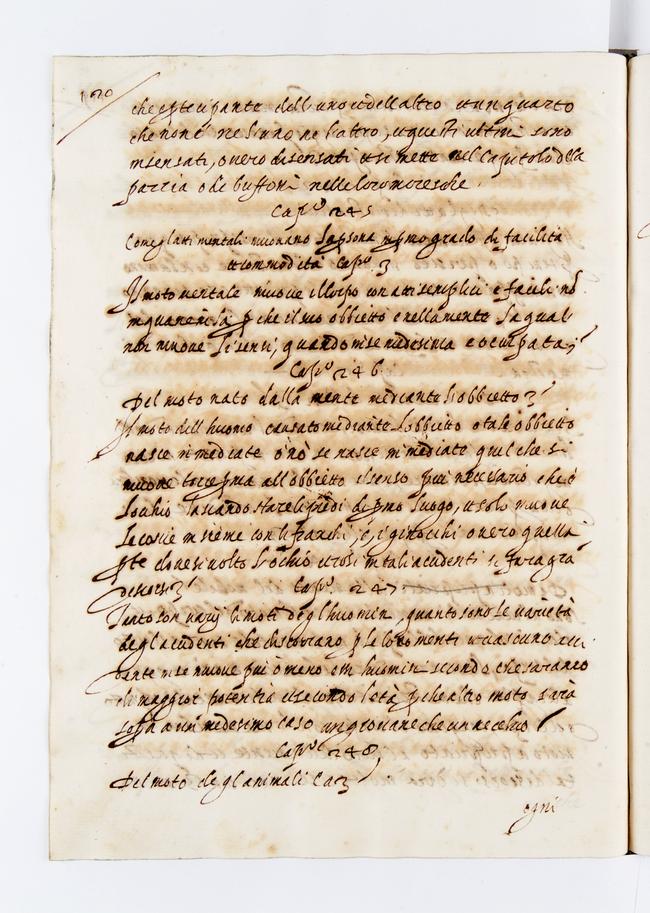 120
che partecipante dell uno et dell altro et un quarto
che non e ne l uno ne l altro, et questi ultimi sono
insensati, overo disensati et si mette nel Capitolo della
pazzia o de buffoni nelle loro moresche.
Cap.º 245
Come gl atti mentali muovano la psona in pmo grado di facilità
et commodità Cap.º
Il moto mentale muove il corpo con atti semplici e facili nõ
in qua e in la p che il suo obbietto e nella mente la qual
non muove li sensi, quando in se medesima e occupata
Cap.º 246
Del moto nato dalla mente mediante l obbietto
Il moto dell huomo causato mediante l obbietto o tale obbietto
nasce immediate o nò se nasce immediate quel che si
muove torce pma all obbietto il senso piu necessario che è
l ochio lasciando stare li piedi al pmo luogo, et solo muove
le coscie insieme con li fianchi, e i ginochi overo quella
pte dove si volto l ochio et cosi in tali accidenti si fara grã
discorsi
Cap.º 247
Tanto son varij li moti degl huomin, quanto sono le varietà
degl accidenti che discorrano p le loro menti et ciascuno acci
dente in se muove piu o meno essi huomini secondo che saranno
di maggior potentia et secondo l età p che altro moto farà
sopra a un medesimo caso un giovane che un vecchio
Cap.º 248
Del moto degl animali Ca
ogni